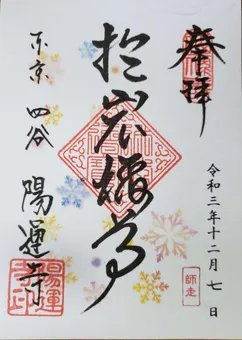 奉拝
於岩稲荷
東京 四谷
陽運寺
令和三年十二月七日
師走
陽運寺印